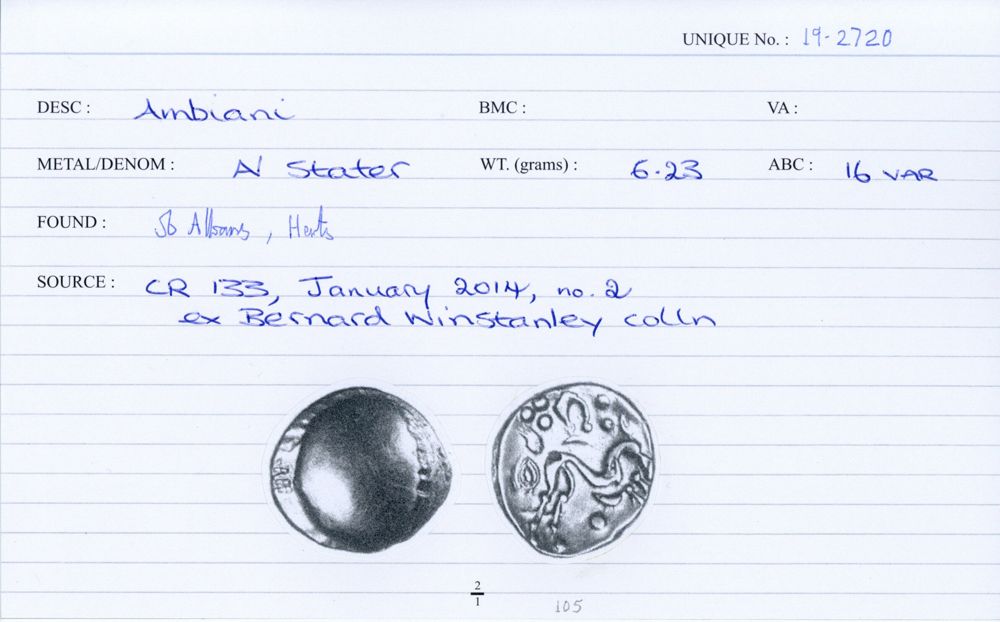 UNIQUE No. : 19-2720
DESC : Ambiani BMC : VA :
METAL/DENOM : AV Stater WT. (grams) : 6.23 ABC : 16 VAR
FOUND : St Albans, Herts
SOURCE : CR 133, January 2014, no. 2
ex Bernard Winstanley colln
2
1
105